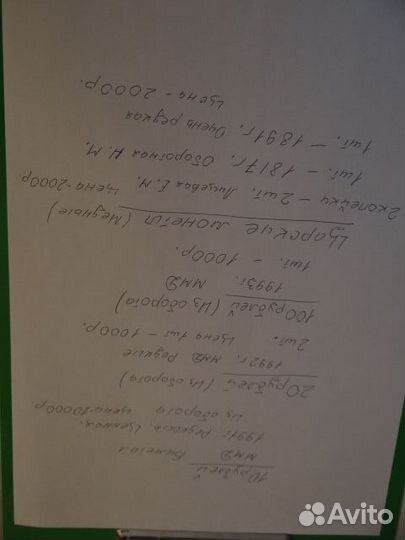 10 рублей
ММД Биметал
1991г. Редкость. Ценная.
Из оборота цена-10000р.
20 рублей (Из оборота)
1992г. ММД Редкие
2шт. Цена 1шт - 1000р.
100 рублей (Из оборота)
1993г. ММД
1шт. - 1000р.
Царские монета (Медные)
2 копейки - 2шт. Лицевая Е.М. Цена-2000р.
1шт. - 1817г. Оборотная Н.М.
1шт. - 1891г. Очень редкая
Цена - 2000р.
Avito